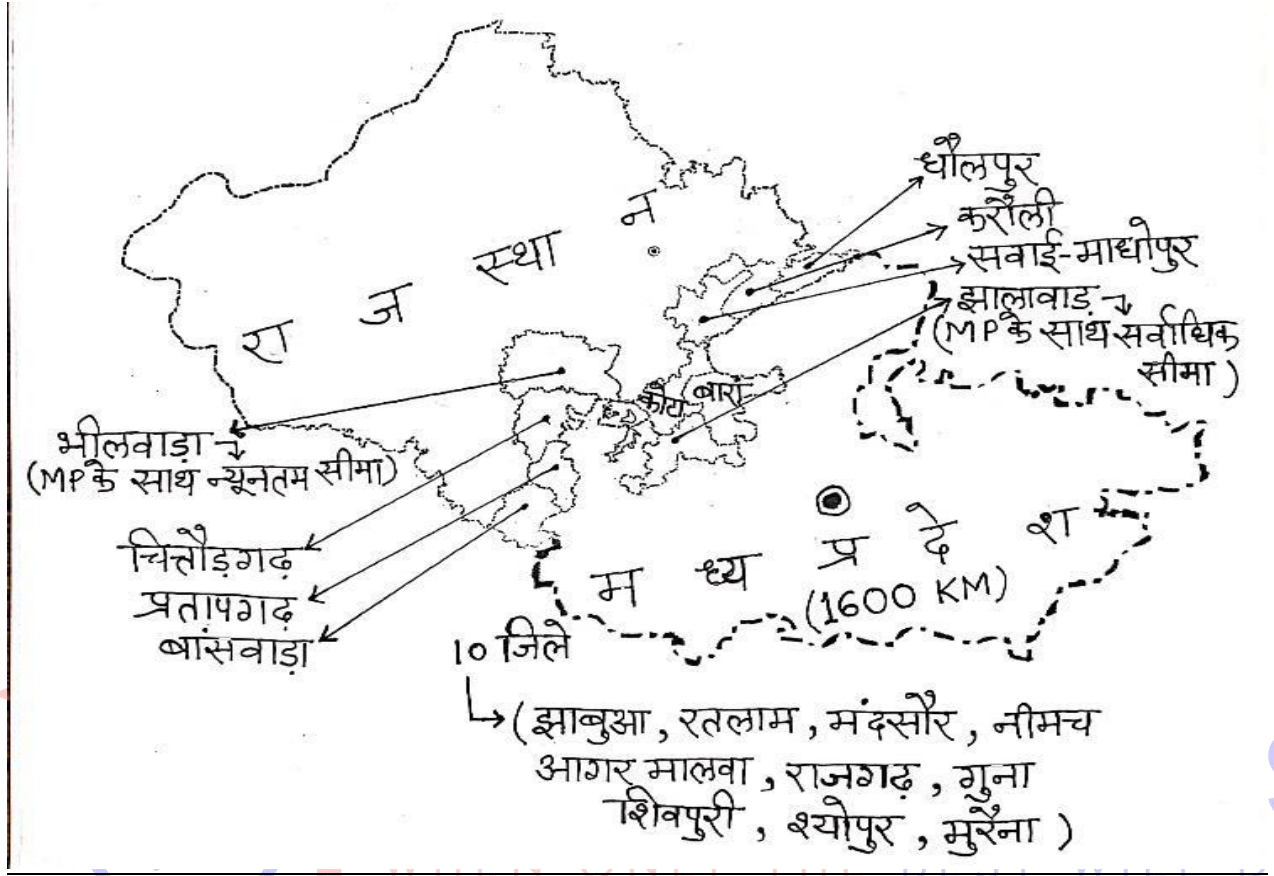 राजस्थान
धौलपुर
करौली
सवाई-माधोपुर
झालावाड़
(MP के साथ सर्वाधिक
सीमा)
कोटा बारां
भीलवाड़ा
(MP के साथ न्यूनतम सीमा)
चित्तौड़गढ़
प्रतापगढ़
बांसवाड़ा
मध्य प्रदेश
(1600 KM)
10 जिले
(झाबुआ, रतलाम, मंदसौर, नीमच
आगर मालवा, राजगढ़, गुना
शिवपुरी, श्योपुर, मुरैना)